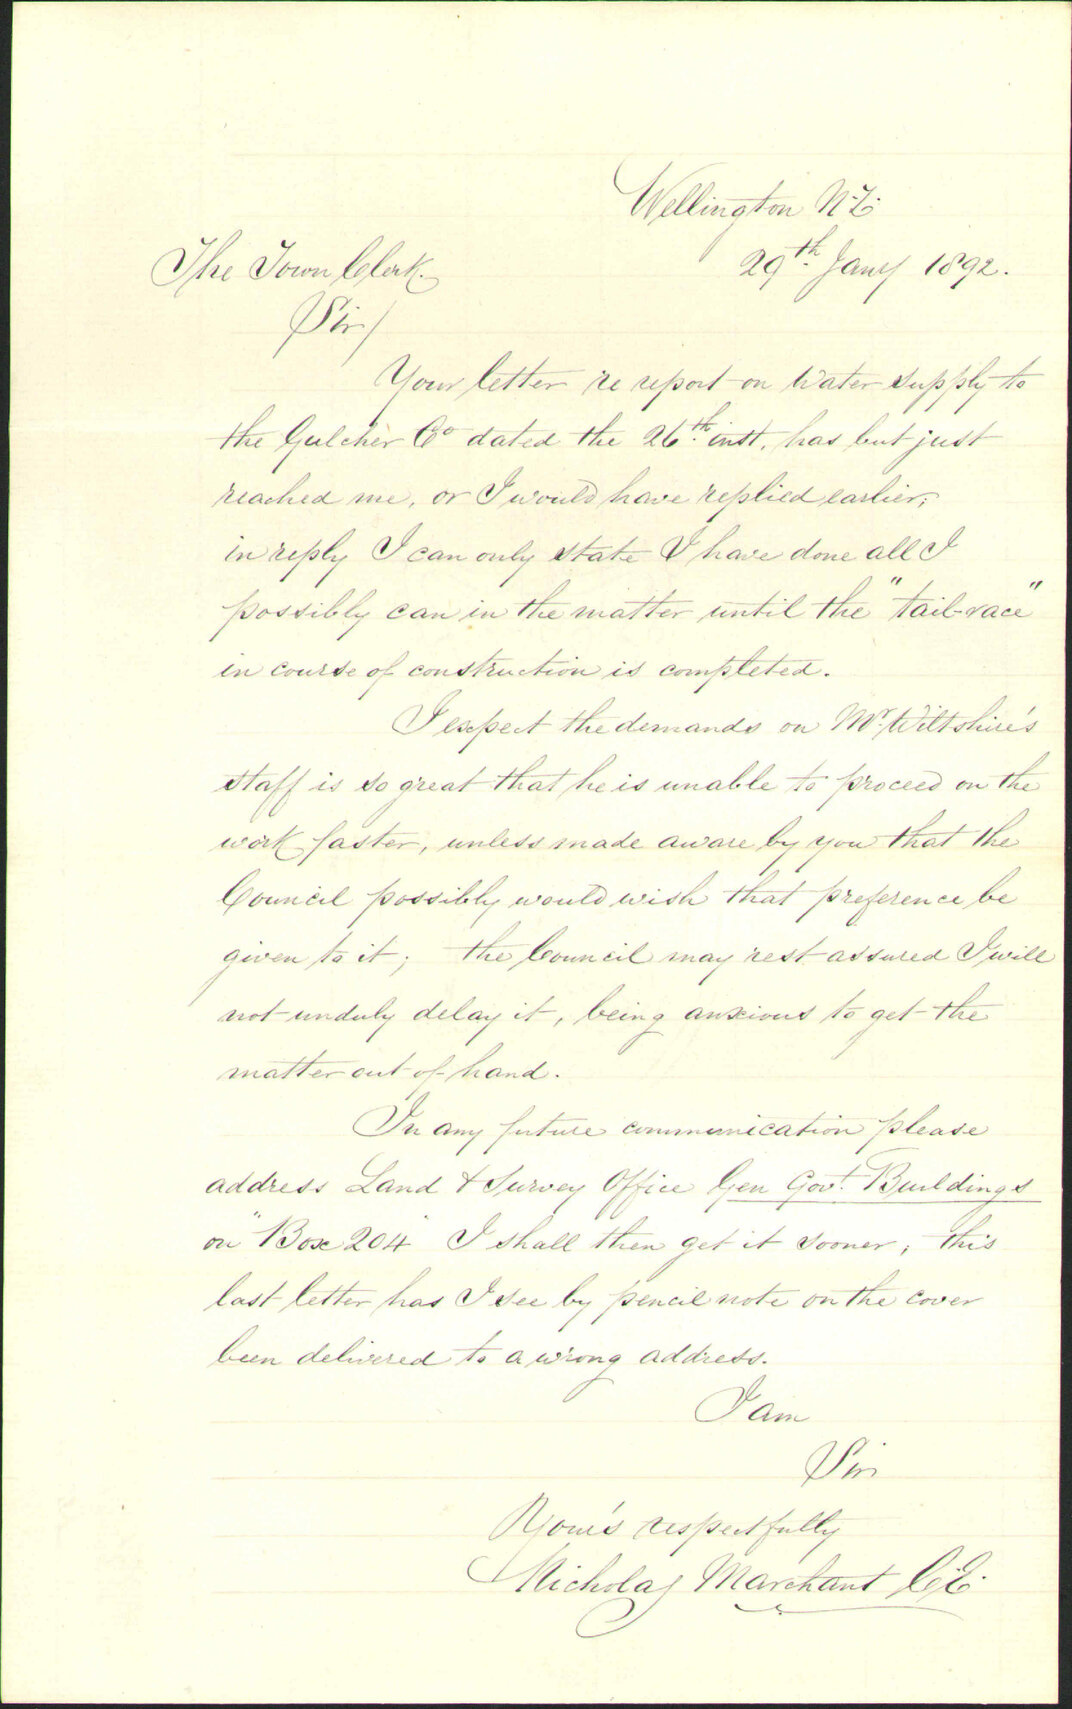 Wellington N.Z.
The Town Clerk.
29th. Jany 1892.
Sir/
Your letter re report on Water supply to
the Gulcher Co dated the 26th. inst. has but just
reached me, or I would have replied earlier;
in reply I can only state I have done all I
possibly can in the matter until the "tail-race"
in course of construction is completed.
I expect the demands on Mr. Wiltshire's
staff is so great that he is unable to proceed on the
work faster, unless made aware by you that the
Council possibly would wish that preference be
given to it; the Council may rest assured I will
not unduly delay it, being anxious to get the
matter out of hand.
In any future communication please
address Land & Survey Office Gen Govt. Buildings
on "Box 204" I shall then get it sooner; this
last letter has I see by pencil note on the cover
been delivered to a wrong address.
I am
Sir
Your's respectfully
Nicholas Marchant C.E.